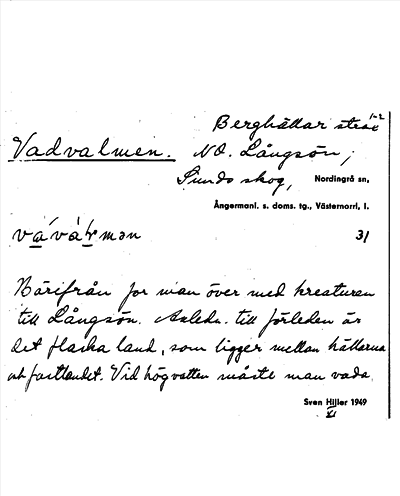 Berghällar strax 1-2
Vadvalmen. NO. Långsön,
Sunds skog, Nordingrå sn,
Ångermanl. s. doms. tg., Västernorrl. l.
31
Härifrån for man över med kreaturen
till Långsön. Anledn. till förleden är
det flacka land, som ligger mellan hällarna
och fastlandet. Vid högvatten måste man vada
Sven Hiller 1949
XI